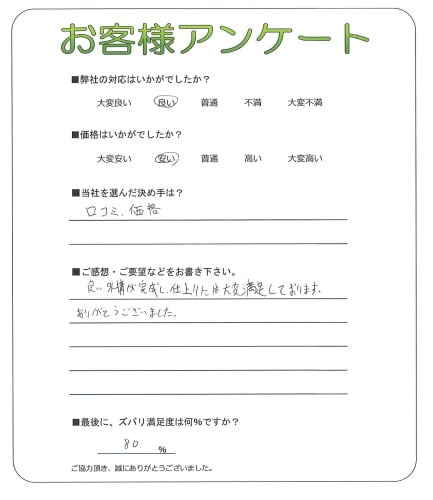 お客様アンケート
■弊社の対応はいかがでしたか？
大変良い 良い 普通 不満 大変不満
■価格はいかがでしたか？
大変安い 安い 普通 高い 大変高い
■当社を選んだ決め手は？
口コミ、価格
■ご感想・ご要望などをお書き下さい。
良い外構が完成し、仕上りには大変満足しております。
ありがとうございました。
■最後に、ズバリ満足度は何%ですか？
80 %
ご協力頂き、誠にありがとうございました。